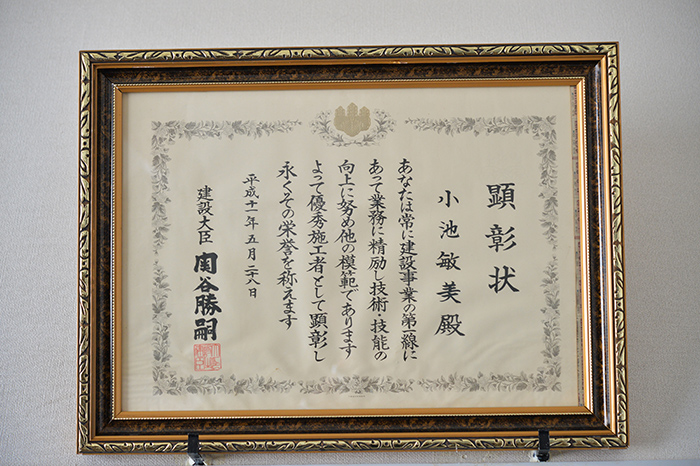 顕彰状
小池敏美殿
あなたは常に建設事業の第一線に
あって業務に精励し技術・技能の
向上に努め他の模範であります
よって優秀施工者として顕彰し
永くその栄誉を称えます
平成十一年五月二十八日
建設大臣 関谷勝嗣